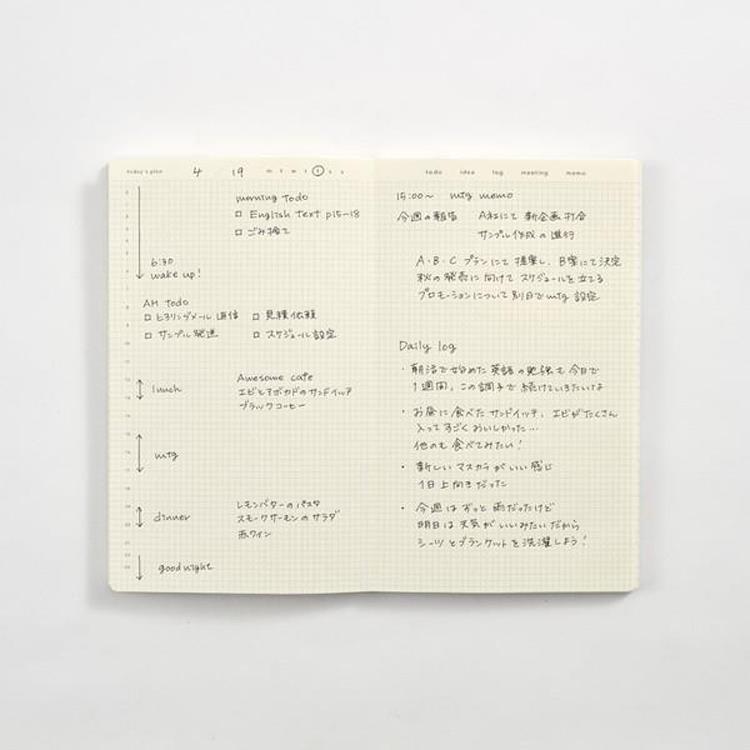 today's plan 4 19 m t w t f s s
morning todo
□ English text p15-18
□ ごみ捨て
6:30
wake up!
AM todo
□ ヒヤリングメール返信 □ 見積依頼
□ サンプル発送 □ スケジュール設定
lunch
Awesome cafe
エビとアボカドのサンドイッチ
ブラックコーヒー
mtg
dinner
レモンバターのパスタ
スモークサーモンのサラダ
赤ワイン
good night
todo idea log meeting memo
15:00〜 mtg memo
今週の報告 A社にて新企画打合
サンプル作成の進行
A・B・Cプランにて提案し、B案にて決定
秋の発売に向けてスケジュールを立てる
プロモーションについて別日でmtg設定
Daily log
・朝活で始めた英語の勉強も今日で
1週間。この調子で続けていきたいな
・お昼に食べたサンドイッチ、エビがたくさん
入ってすごくおいしかった…
他のも食べてみたい!
・新しいマスカラがいい感じ
1日上向きだった
・今週はずっと雨だったけど
明日は天気がいいみたいだから
シーツとブランケットを洗濯しよう!